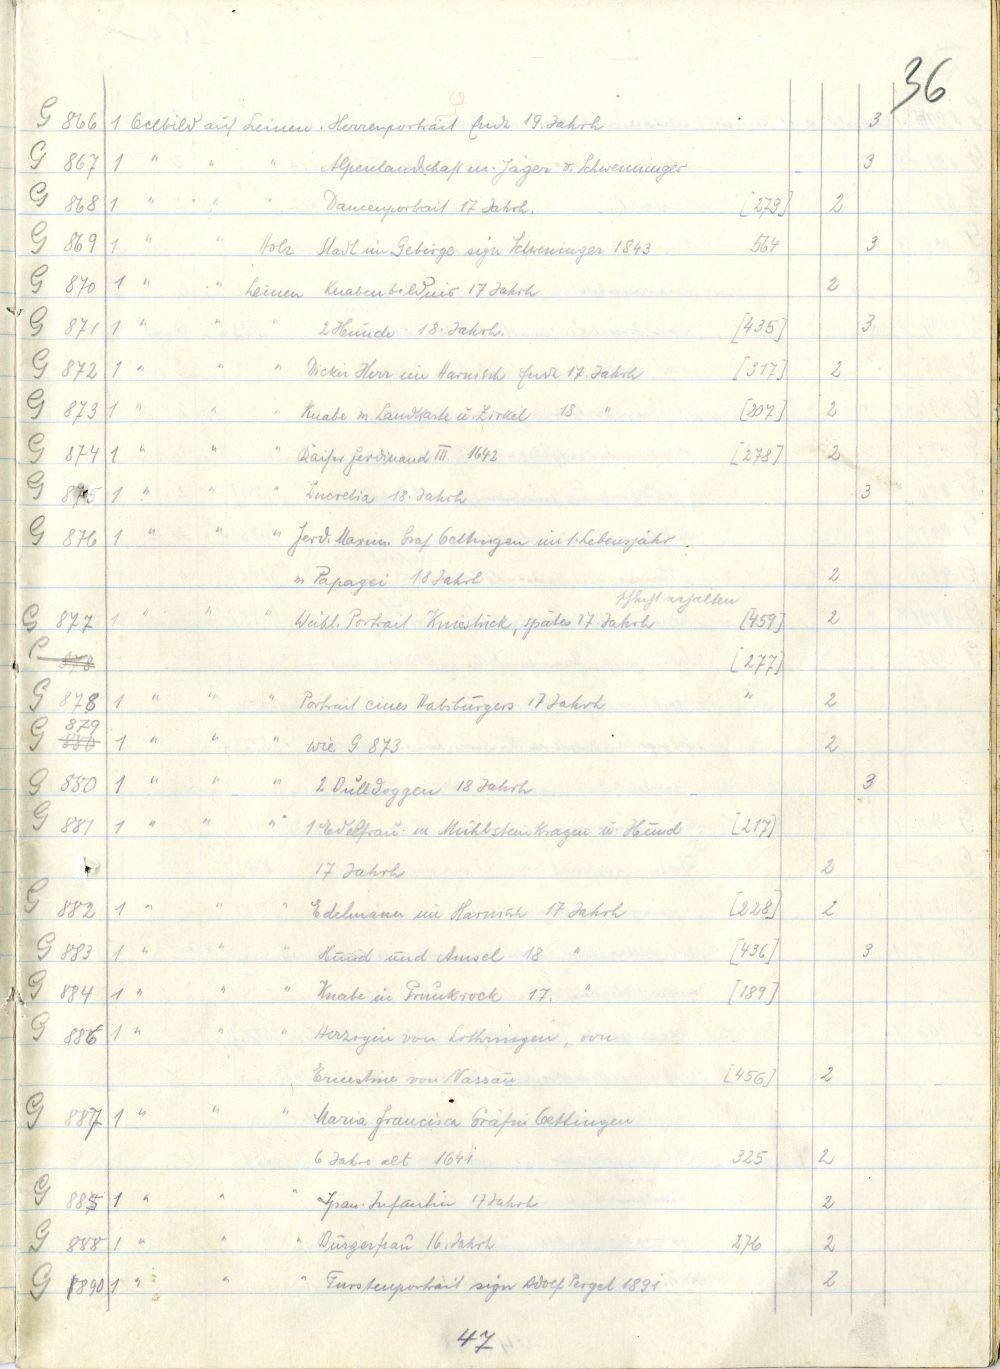 36
G 866 1 Oelbild auf Leinen. Herrenportrait Ende 19. Jahrh 3
G 867 1 " " " Alpenlandschaft m. Jäger v. Schwenninger 3
G 868 1 " " " Damenportrait 17 Jahrh. [279] 2
G 869 1 " " Holz Stadl im Gebirge sign Schweninger 1843 564 3
G 870 1 " " Leinen Knabenbildnis 17 Jahrh 2
G 871 1 " " " 2 Hunde 18. Jahrh. [435] 3
G 872 1 " " " Dicker Herr im Harnisch Ende 17. Jahrh [317] 2
G 873 1 " " " Knabe m Landkarte u. Zirkel 18 " [207] 2
G 874 1 " " " Kaiser Ferdinand III. 1642 [278] 2
G 875 1 " " " Lucretia 18. Jahrh 3
G 876 1 " " " Ferd. Maxim. Graf Oettingen im 1. Lebensjahr
m Papagei 18 Jahrh 2
schlecht erhalten
G 877 1 " " " Weibl. Portrait Kniestück, spätes 17. Jahrh [459] 2
G 878 [277]
G 878 1 " " " Portrait eines Habsburgers 17 Jahrh " 2
879
G 880 1 " " " wie G 873 2
G 880 1 " " " 2 Bulldoggen 18 Jahrh 3
G 881 1 " " " 1 Edelfrau m Mühlsteinkragen u. Hund [217]
17 Jahrh 2
G 882 1 " " " Edelmann im Harnisch 17 Jahrh [228] 2
G 883 1 " " " Hund und Amsel 18 " [436] 3
G 884 1 " " " Knabe in Prunkrock 17. " [189]
G 886 1 " " " Herzogin von Lothringen, von
Ernestine von Nassau [456] 2
G 887 1 " " " Maria Francisca Gräfin Oettingen
6 Jahre alt 1641 325 2
G 885 1 " " " Span. Infantin 17 Jahrh 2
G 888 1 " " " Bürgerfrau 16. Jahrh 276 2
G 890 1 " " " Fürstenportrait sign Adolf Pergel 1891 2
47